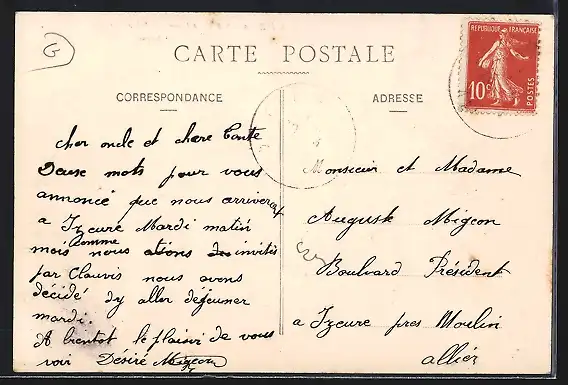 G
CARTE POSTALE
RÉPUBLIQUE FRANÇAISE
10c
POSTES
CORRESPONDANCE
cher oncle et chere Tante
Deuse mots pour vous
annoncé que nous arriveront
a Izeure Mardi matin
mais comme nous ations des invités
par Clauvis nous avons
décidé dy aller déjeuner
mardi.
A bientot le plaisir de vous
voir Desiré Migeon
ADRESSE
Monsieur et Madame
Auguste Migeon
Boulvard Président
a Izeure pres Moulin
alliér